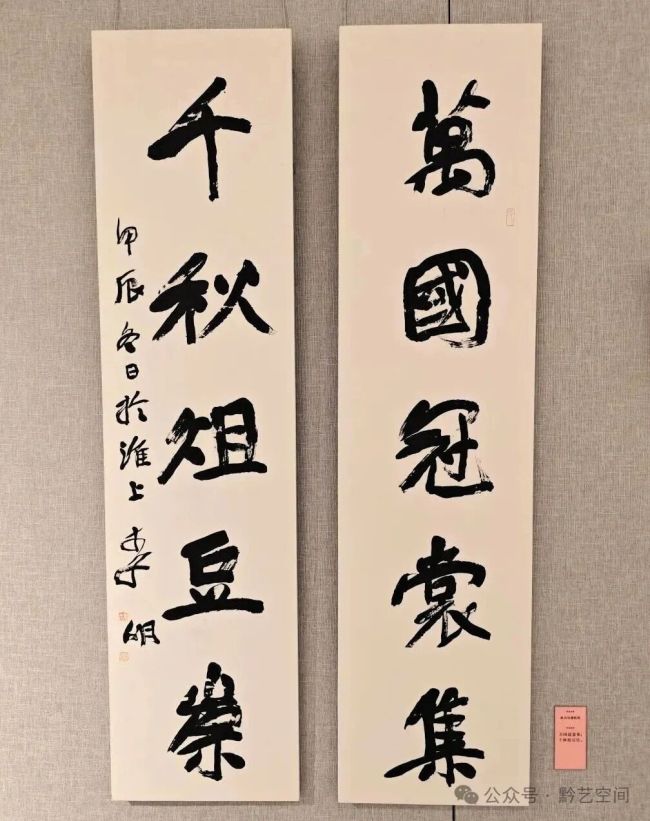 萬國冠裳集
千秋俎豆榮
甲辰冬日於淮上 李明
公众号·黔艺空间